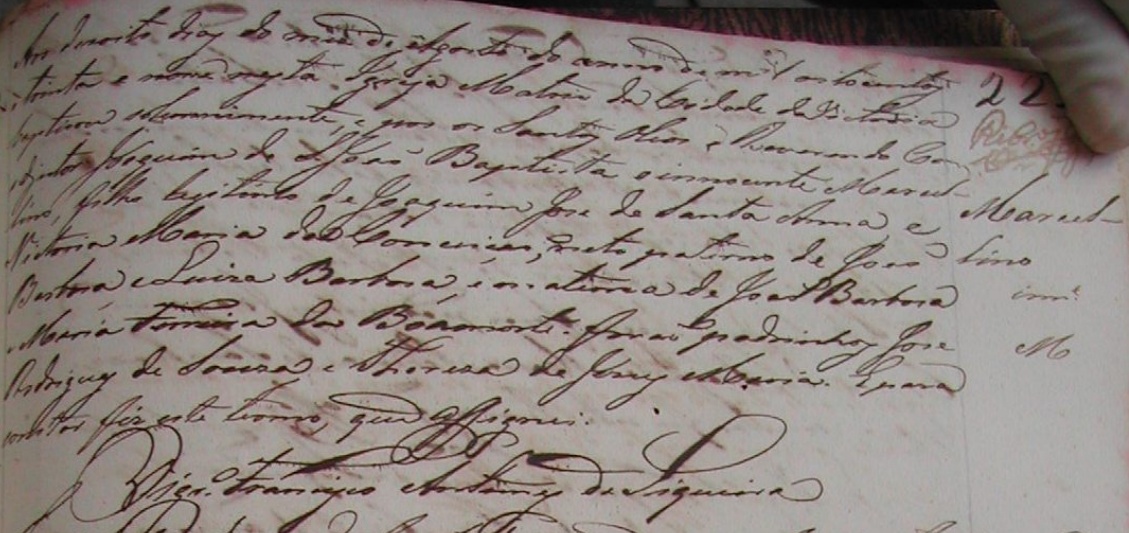 Aos desoito dias do mes de Agosto do anno de mil oitocentos
e trinta e nove nesta Igreja Matris da Cidade da Victoria
baptisou solemnimente, e pos os Santos Olios o Reverendo Co-
adjutor Joaquim de S. João Baptista o innocente Marcel-
lino, filho legitimo de Joaquim Jose de Santa Anna e
Victoria Maria da Conceicão, neto paterno de João
Barbosa e Luiza Barbosa, e materna de José Barbosa
Maria Ferreira da Boamorte. forão padrinhos Jose
Rodrigues de Souza e Thereza de Jesus Maria. E para
constar fiz este termo, que assignei.
Vigr.º Francisco Antunes de Siqueira
22
Marcel-
lino
inn.e
M